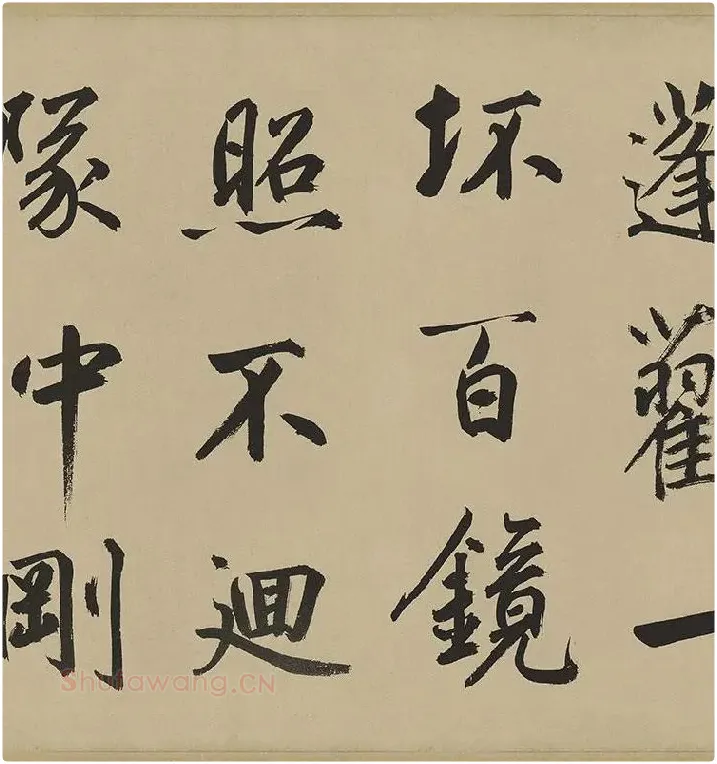 蓬藋一
坏百鏡
照不迴
隊中剛
Shufawang.CN